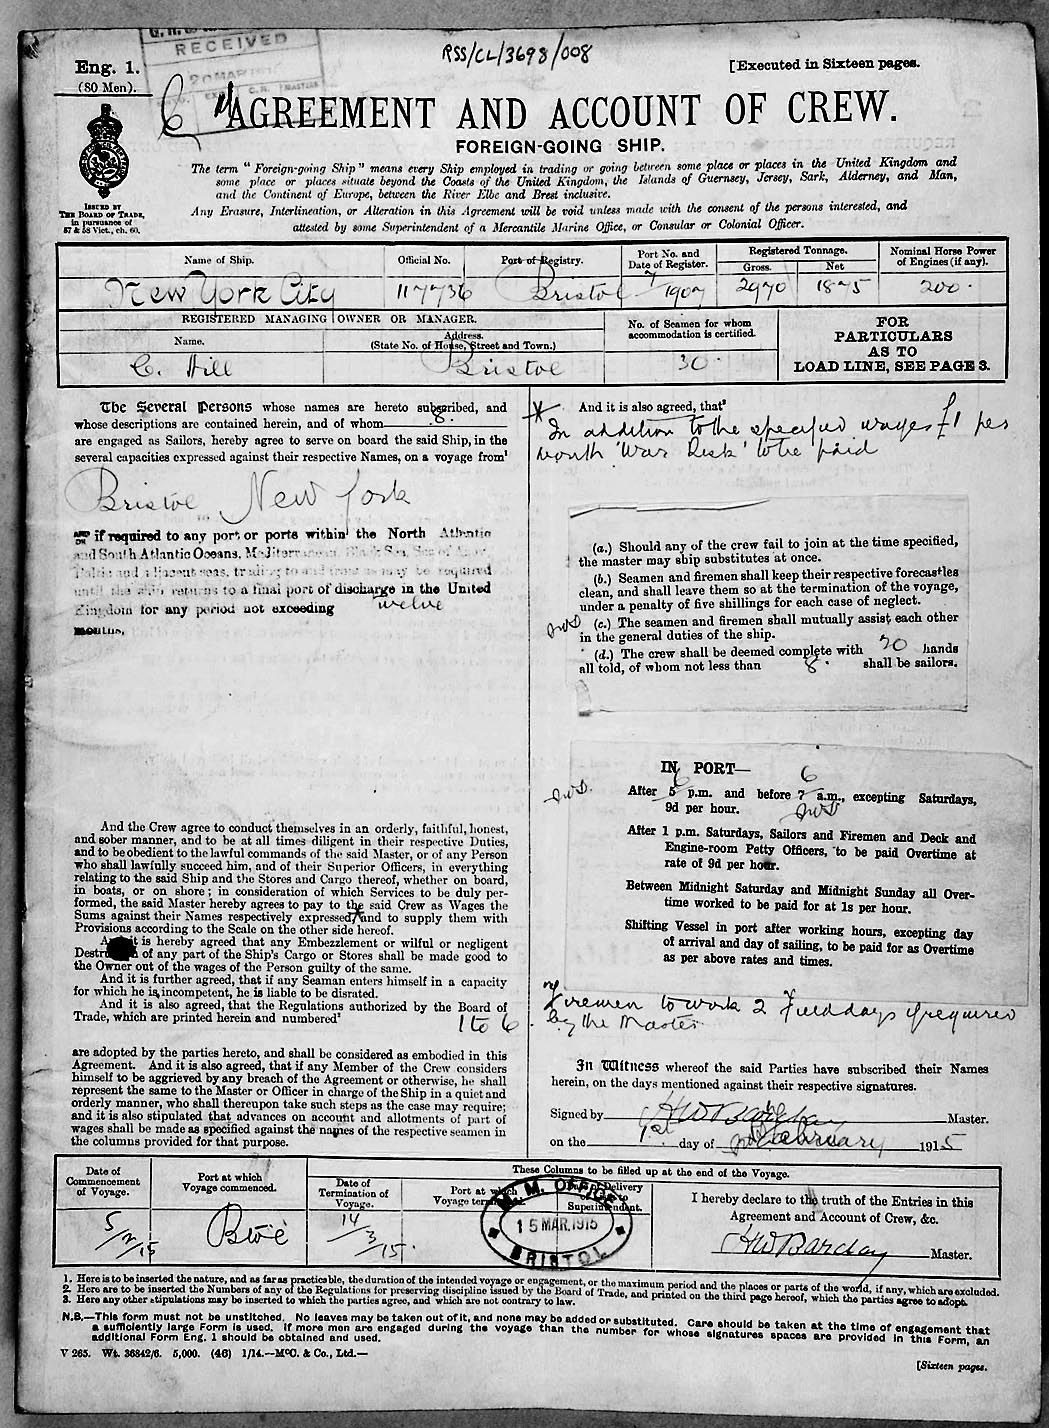 RECEIVED
20 MAR
RSS/CL/3698/008
Eng. 1.
(80 Men).
[Executed in Sixteen pages.
AGREEMENT AND ACCOUNT OF CREW.
FOREIGN-GOING SHIP.
The term "Foreign-going Ship" means every Ship employed in trading or going between some place or places in the United Kingdom and
some place or places situate beyond the Coasts of the United Kingdom, the Islands of Guernsey, Jersey, Sark, Alderney, and Man,
and the Continent of Europe, between the River Elbe and Brest inclusive.
Any Erasure, Interlineation, or Alteration in this Agreement will be void unless made with the consent of the persons interested, and
attested by some Superintendent of a Mercantile Marine Office, or Consular or Colonial Officer.
ISSUED BY
THE BOARD OF TRADE,
in pursuance of
57 & 58 Vict., ch. 60.
Name of Ship. Official No. Port of Registry. Port No. and Date of Register. Registered Tonnage. Gross. Net Nominal Horse Power of Engines (if any).
New York City 117736 Bristol 7/1907 2970 1875 200.
REGISTERED MANAGING OWNER OR MANAGER.
Name. Address. (State No. of House, Street and Town.) No. of Seamen for whom accommodation is certified.
C. Hill Bristol 30.
FOR
PARTICULARS
AS TO
LOAD LINE, SEE PAGE 3.
The Several Persons whose names are hereto subscribed, and
whose descriptions are contained herein, and of whom 8.
are engaged as Sailors, hereby agree to serve on board the said Ship, in the
several capacities expressed against their respective Names, on a voyage from¹
Bristol New York
AND OR if required to any port or ports within the North Atlantic
and South Atlantic Oceans, Mediterranean, Black Sea, Sea of Azov,
Baltic and adjacent seas, trading to and from as may be required
until the ship returns to a final port of discharge in the United
Kingdom for any period not exceeding twelve
months,
And the Crew agree to conduct themselves in an orderly, faithful, honest,
and sober manner, and to be at all times diligent in their respective Duties,
and to be obedient to the lawful commands of the said Master, or of any Person
who shall lawfully succeed him, and of their Superior Officers, in everything
relating to the said Ship and the Stores and Cargo thereof, whether on board,
in boats, or on shore; in consideration of which Services to be duly per-
formed, the said Master hereby agrees to pay to the said Crew as Wages the
Sums against their Names respectively expressed, and to supply them with
Provisions according to the Scale on the other side hereof.
it is hereby agreed that any Embezzlement or wilful or negligent
of any part of the Ship's Cargo or Stores shall be made good to
the Owner out of the wages of the Person guilty of the same.
And it is further agreed, that if any Seaman enters himself in a capacity
for which he is incompetent, he is liable to be disrated.
And it is also agreed, that the Regulations authorized by the Board of
Trade, which are printed herein and numbered² 1 to 6
are adopted by the parties hereto, and shall be considered as embodied in this
Agreement. And it is also agreed, that if any Member of the Crew considers
himself to be aggrieved by any breach of the Agreement or otherwise, he shall
represent the same to the Master or Officer in charge of the Ship in a quiet and
orderly manner, who shall thereupon take such steps as the case may require;
and it is also stipulated that advances on account and allotments of part of
wages shall be made as specified against the names of the respective seamen in
the columns provided for that purpose.
And it is also agreed, that³
In addition to the specified wages £1 per
month 'War Risk' to be paid
(a.) Should any of the crew fail to join at the time specified,
the master may ship substitutes at once.
(b.) Seamen and firemen shall keep their respective forecastles
clean, and shall leave them so at the termination of the voyage,
under a penalty of five shillings for each case of neglect.
(c.) The seamen and firemen shall mutually assist each other
in the general duties of the ship.
(d.) The crew shall be deemed complete with 20 hands
all told, of whom not less than 8. shall be sailors.
IN PORT—
6 6
After 5 p.m. and before 7 a.m., excepting Saturdays,
9d per hour.
After 1 p.m. Saturdays, Sailors and Firemen and Deck and
Engine-room Petty Officers, to be paid Overtime at
rate of 9d per hour.
Between Midnight Saturday and Midnight Sunday all Over-
time worked to be paid for at 1s per hour.
Shifting Vessel in port after working hours, excepting day
of arrival and day of sailing, to be paid for as Overtime
as per above rates and times.
Firemen to work 2 Field days if required
by the Master
In Witness whereof the said Parties have subscribed their Names
herein, on the days mentioned against their respective signatures.
Signed by HW Barclay Master.
on the 1st day of February 1915
These Columns to be filled up at the end of the Voyage.
Date of Commencement of Voyage. Port at which Voyage commenced. Date of Termination of Voyage. Port at which Voyage terminated. Date of Delivery of Lists to Superintendent.
5/2/15 Btol 14/3/15.
M. M. OFFICE
15 MAR. 1915
BRISTOL
I hereby declare to the truth of the Entries in this
Agreement and Account of Crew, &c.
HW Barclay Master.
1. Here is to be inserted the nature, and as far as practicable, the duration of the intended voyage or engagement, or the maximum period and the places or parts of the world, if any, which are excluded.
2. Here are to be inserted the Numbers of any of the Regulations for preserving discipline issued by the Board of Trade, and printed on the third page hereof, which the parties agree to adopt.
3. Here any other stipulations may be inserted to which the parties agree, and which are not contrary to law.
N.B.—This form must not be unstitched. No leaves may be taken out of it, and none may be added or substituted. Care should be taken at the time of engagement that
a sufficiently large Form is used. If more men are engaged during the voyage than the number for whose signatures spaces are provided in this Form, an
additional Form Eng. 1 should be obtained and used.
V 265. Wt. 36842/6. 5,000. (46) 1/14.—McC. & Co., Ltd.—
[Sixteen pages.